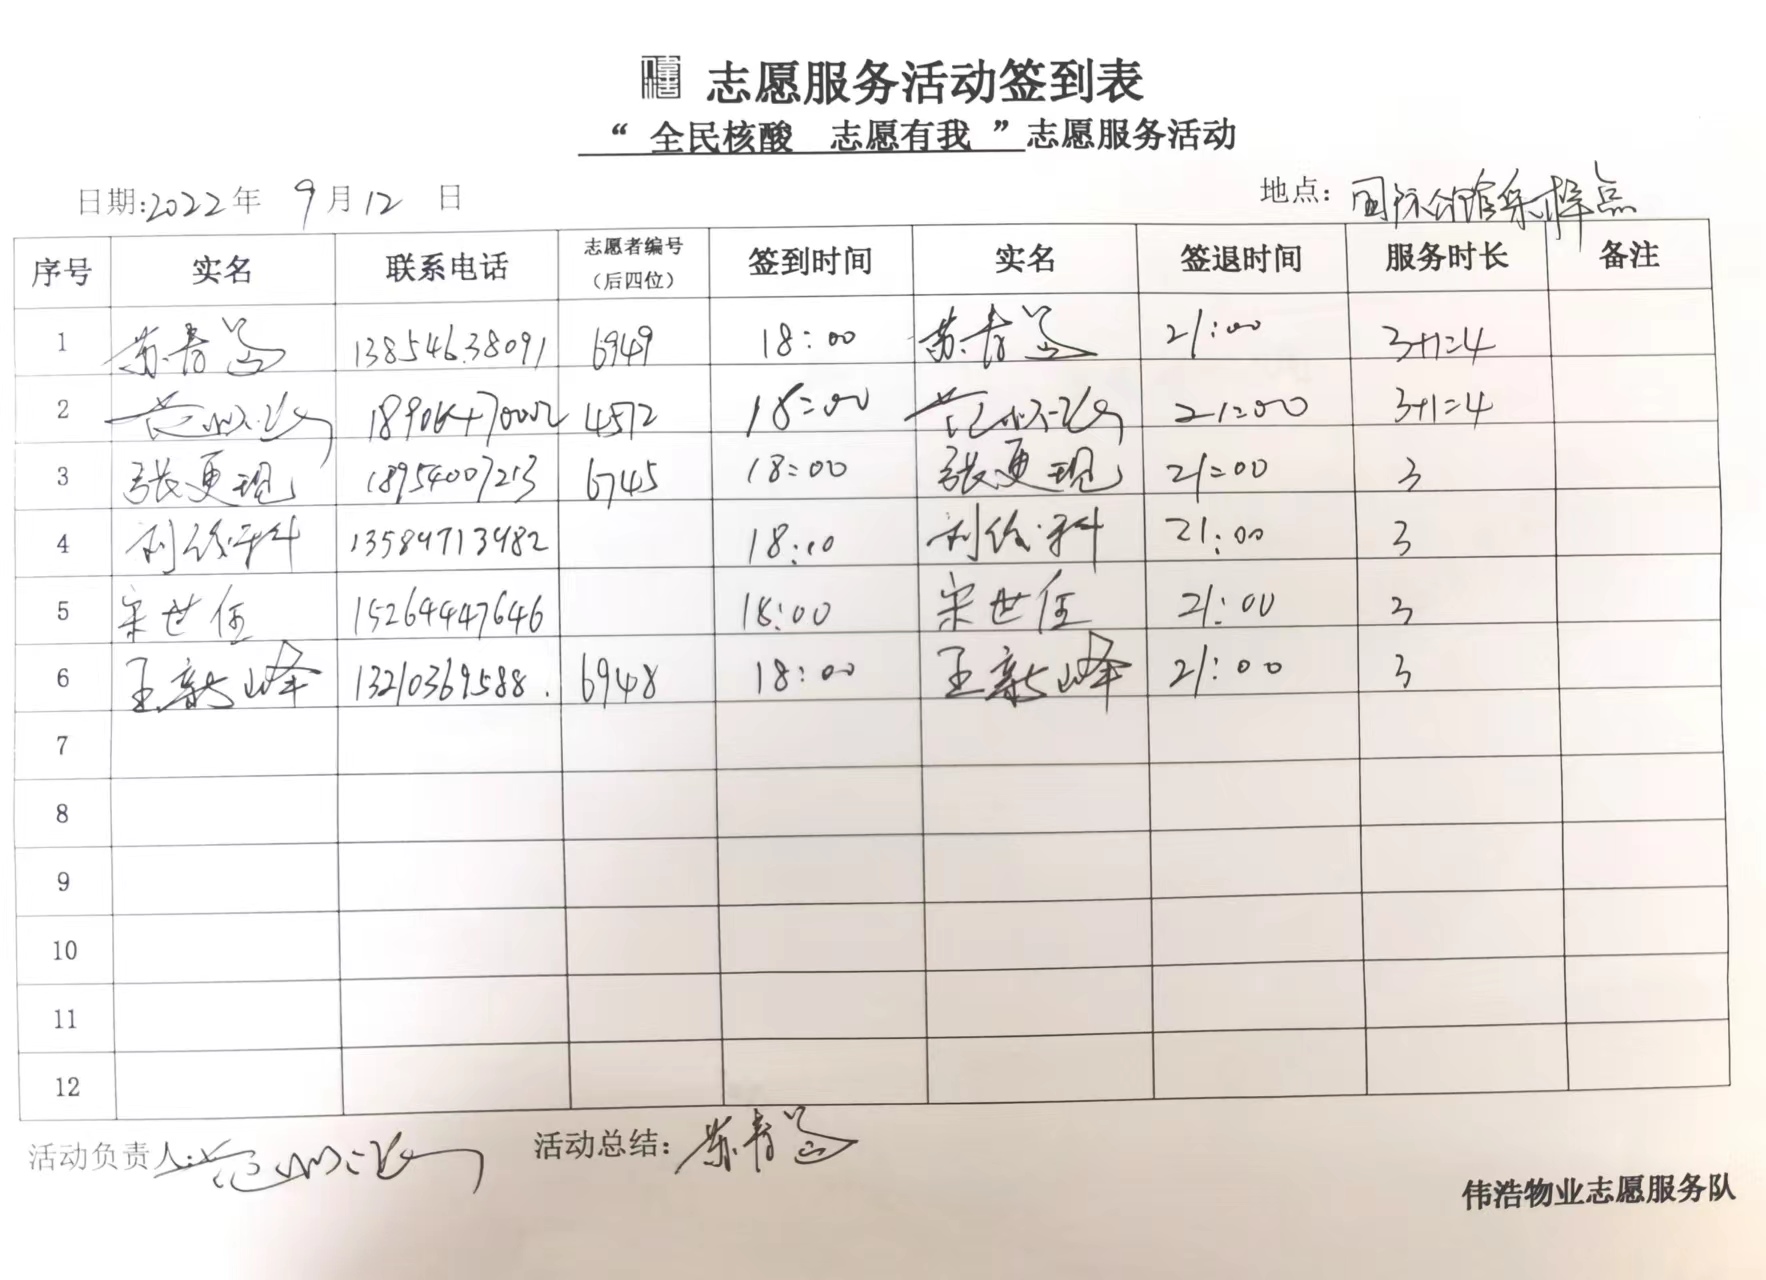 志愿服务活动签到表
“ 全民核酸 志愿有我 ”志愿服务活动
日期:2022年 9月12 日 地点: 国际公馆采样点
序号 实名 联系电话 志愿者编号(后四位) 签到时间 实名 签退时间 服务时长 备注
1 苏春 13854638091 6949 18:00 苏春 21:00 3+1=4
2 范 4572 18:00 范 21:00 3+1=4
3 张更现 18954007213 6745 18:00 张更现 21:00 3
4 刘 科 13589713482 18:00 刘 科 21:00 3
5 宋世任 15264447646 18:00 宋世任 21:00 3
6 王新峰 13210369588. 6948 18:00 王新峰 21:00 3
7
8
9
10
11
12
活动负责人: 范 活动总结: 苏春
伟浩物业志愿服务队